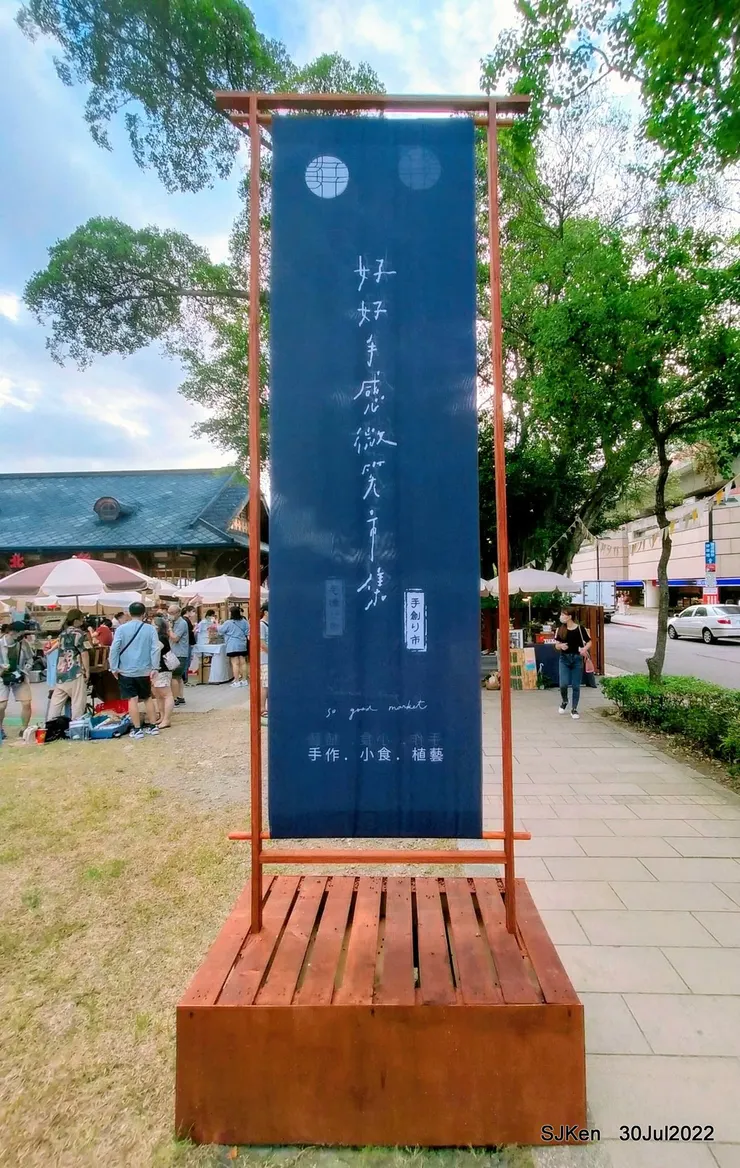 好好手感微笑市集
手創り市
so good market
手作．小食．植藝
SJKen 30Jul2022